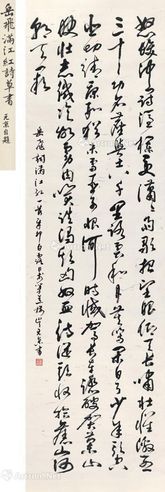 岳飛滿江紅詩草書
怒髮衝冠憑闌處瀟瀟雨歇抬望眼仰天長嘯壯懷激烈
三十功名塵與土八千里路雲和月莫等閒白了少年頭空
悲切靖康恥猶未雪臣子恨何時滅駕長車踏破賀蘭山
缺壯志飢餐胡虜肉笑談渴飲匈奴血待從頭收拾舊山河
朝天闕
岳飛詞滿江紅一首辛卯白露